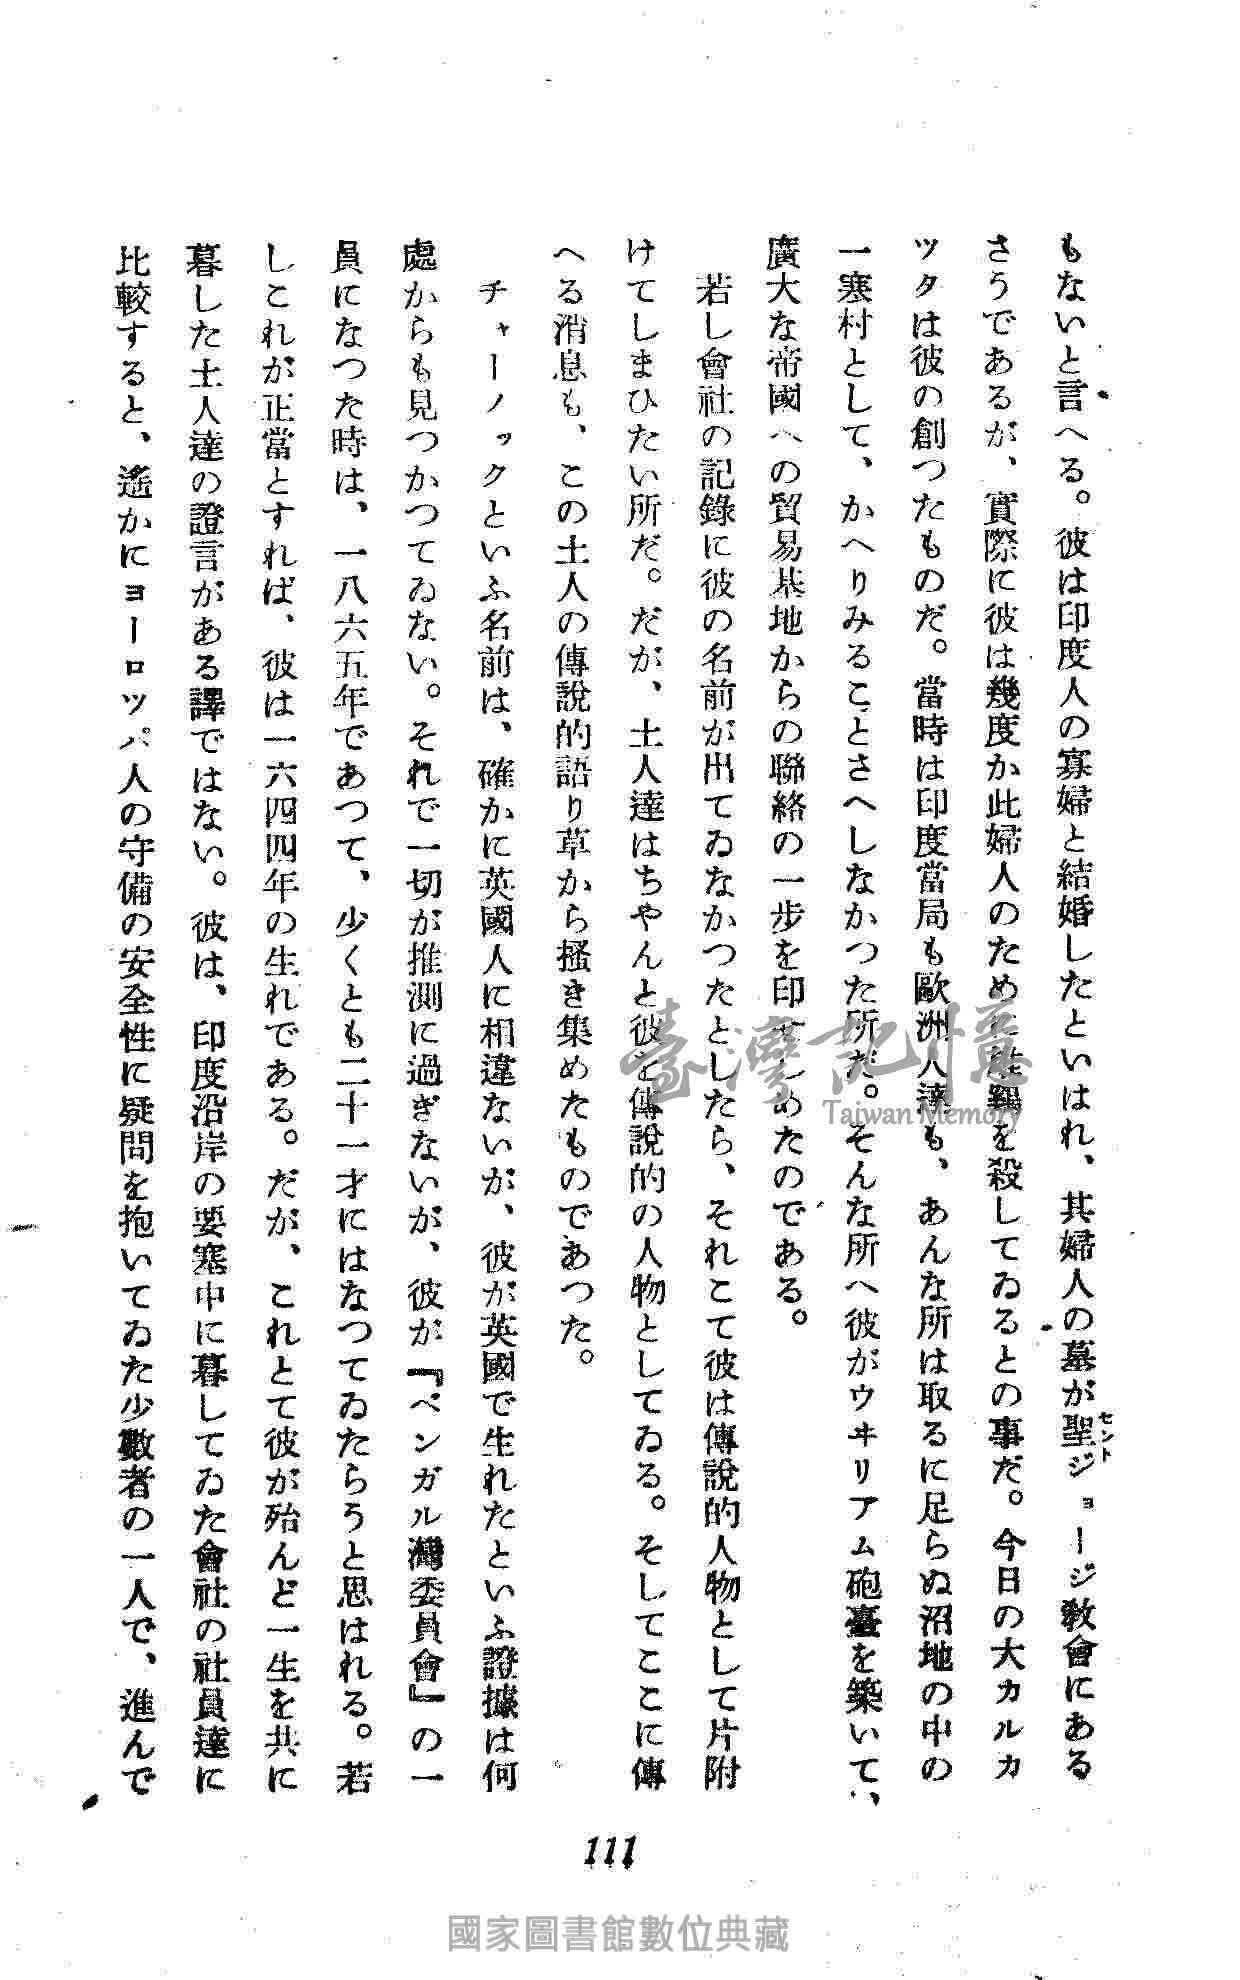 もないと言へる。彼は印度人の寡婦と結婚したといはれ、其婦人の墓が聖ジョージ教會にある
セント
さうであるが、實際に彼は幾度か此婦人のために雄鷄を殺してゐるとの事だ。今日の大カルカ
ツタは彼の創つたものだ。當時は印度當局も歐洲人達も、あんな所は取るに足らぬ沼地の中の
一寒村として、かへりみることさへしなかつた所だ。そんな所へ彼がウヰリアム砲臺を築いて、
廣大な帝國への貿易基地からの聯絡の一步を印せしめたのである。
若し會社の記錄に彼の名前が出てゐなかつたとしたら、それこて彼は傳說的人物として片附
けてしまひたい所だ。だが、土人達はちやんと彼を傳說的の人物としてゐる。そしてここに傳
へる消息も、この土人の傳說的語り草から搔き集めたものであつた。
チャーノックといふ名前は、確かに英國人に相違ないが、彼が英國で生れたといふ證據は何
處からも見つかつてゐない。それで一切が推測に過ぎないが、彼が『ベンガル灣委員會』の一
員になつた時は、一八六五年であつて、少くとも二十一才にはなつてゐたらうと思はれる。若
しこれが正當とすれば、彼は一六四四年の生れである。だが、これとて彼が殆んど一生を共に
暮した土人達の證言がある譯ではない。彼は、印度沿岸の要塞中に暮してゐた會社の社員達に
比較すると、遙かにヨーロツパ人の守備の安全性に疑問を抱いてゐた少數者の一人で、進んで
111
臺灣記憶
Taiwan Memory
國家圖書館數位典藏